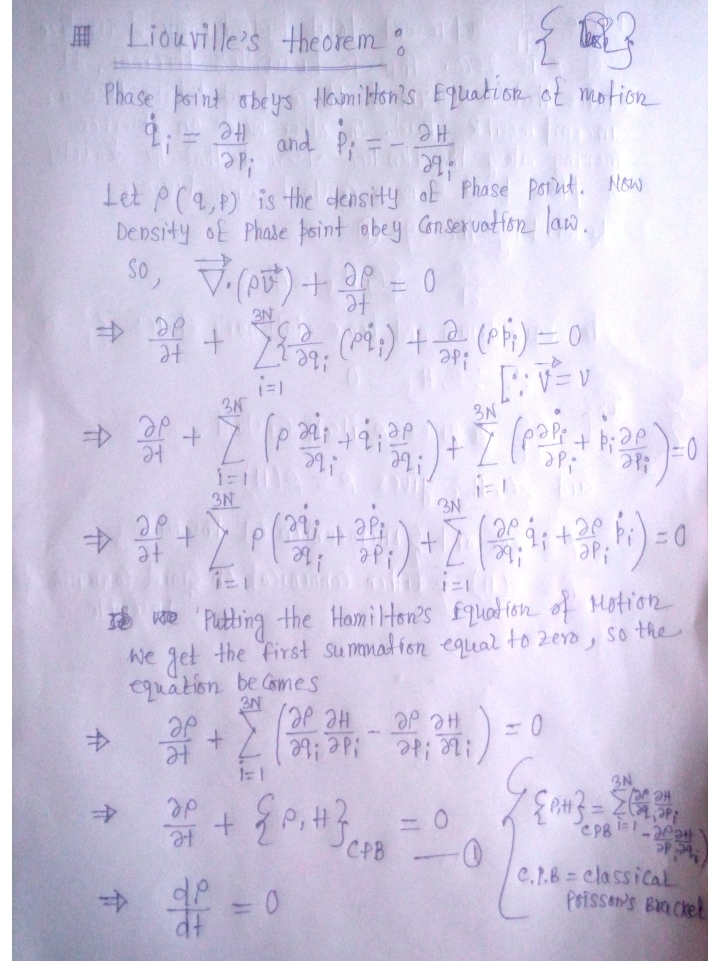 Liouville's theorem :
Phase point obeys Hamilton's Equation of motion
q̇ᵢ = ∂H/∂Pᵢ and Ṗᵢ = - ∂H/∂qᵢ
Let ρ(q,p) is the density of Phase point. Now
Density of Phase point obey Conservation law.
So, ∇⃗·(ρv⃗) + ∂ρ/∂t = 0
⇒ ∂ρ/∂t + Σ_{i=1}^{3N} { ∂/∂qᵢ (ρq̇ᵢ) + ∂/∂pᵢ (ρṗᵢ) = 0
[∵ v⃗ = v
⇒ ∂ρ/∂t + Σ_{i=1}^{3N} (ρ ∂q̇ᵢ/∂qᵢ + q̇ᵢ ∂ρ/∂qᵢ) + Σ_{i=1}^{3N} (ρ ∂ṗᵢ/∂pᵢ + ṗᵢ ∂ρ/∂pᵢ) = 0
⇒ ∂ρ/∂t + Σ_{i=1}^{3N} ρ (∂q̇ᵢ/∂qᵢ + ∂ṗᵢ/∂pᵢ) + Σ_{i=1}^{3N} (∂ρ/∂qᵢ q̇ᵢ + ∂ρ/∂pᵢ ṗᵢ) = 0
Putting the Hamilton's Equation of Motion
we get the first summation equal to zero, so the
equation becomes
⇒ ∂ρ/∂t + Σ_{i=1}^{3N} (∂ρ/∂qᵢ ∂H/∂pᵢ - ∂ρ/∂pᵢ ∂H/∂qᵢ) = 0
⇒ ∂ρ/∂t + {ρ,H}_CPB = 0 —— ①
{ρ,H}_CPB = Σ_{i=1}^{3N} (∂ρ/∂qᵢ ∂H/∂pᵢ
- ∂ρ/∂pᵢ ∂H/∂qᵢ)
C.P.B = Classical
Poisson's Bracket
⇒ dρ/dt = 0